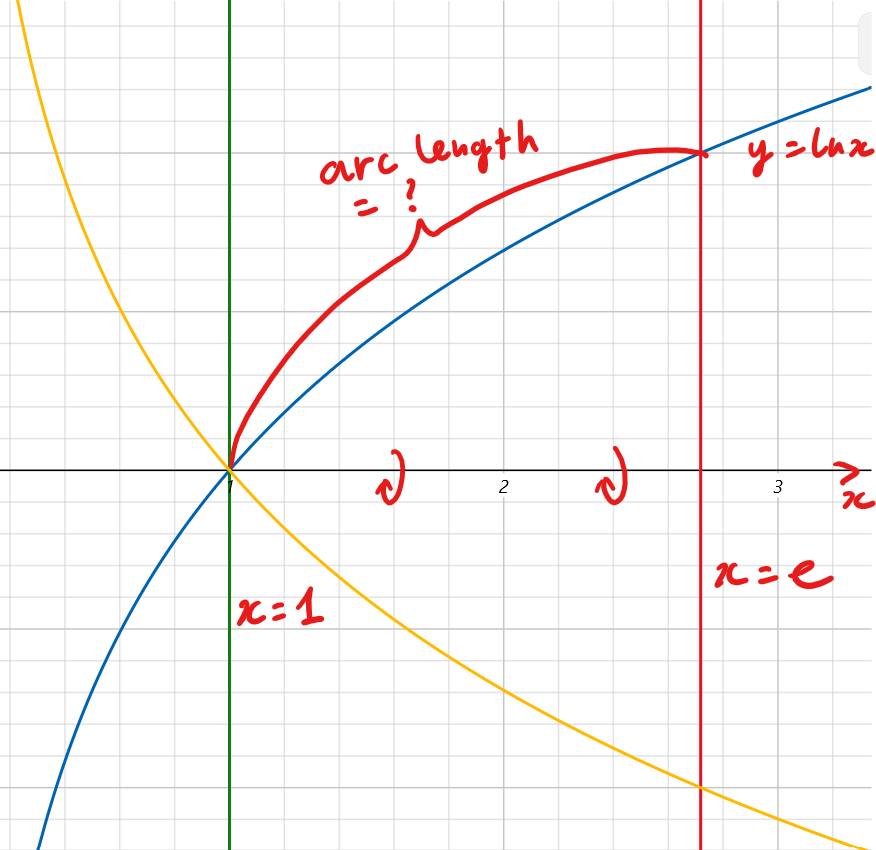 arc length
= ?
y = ln x
1
2
3
x
x = 1
x = e